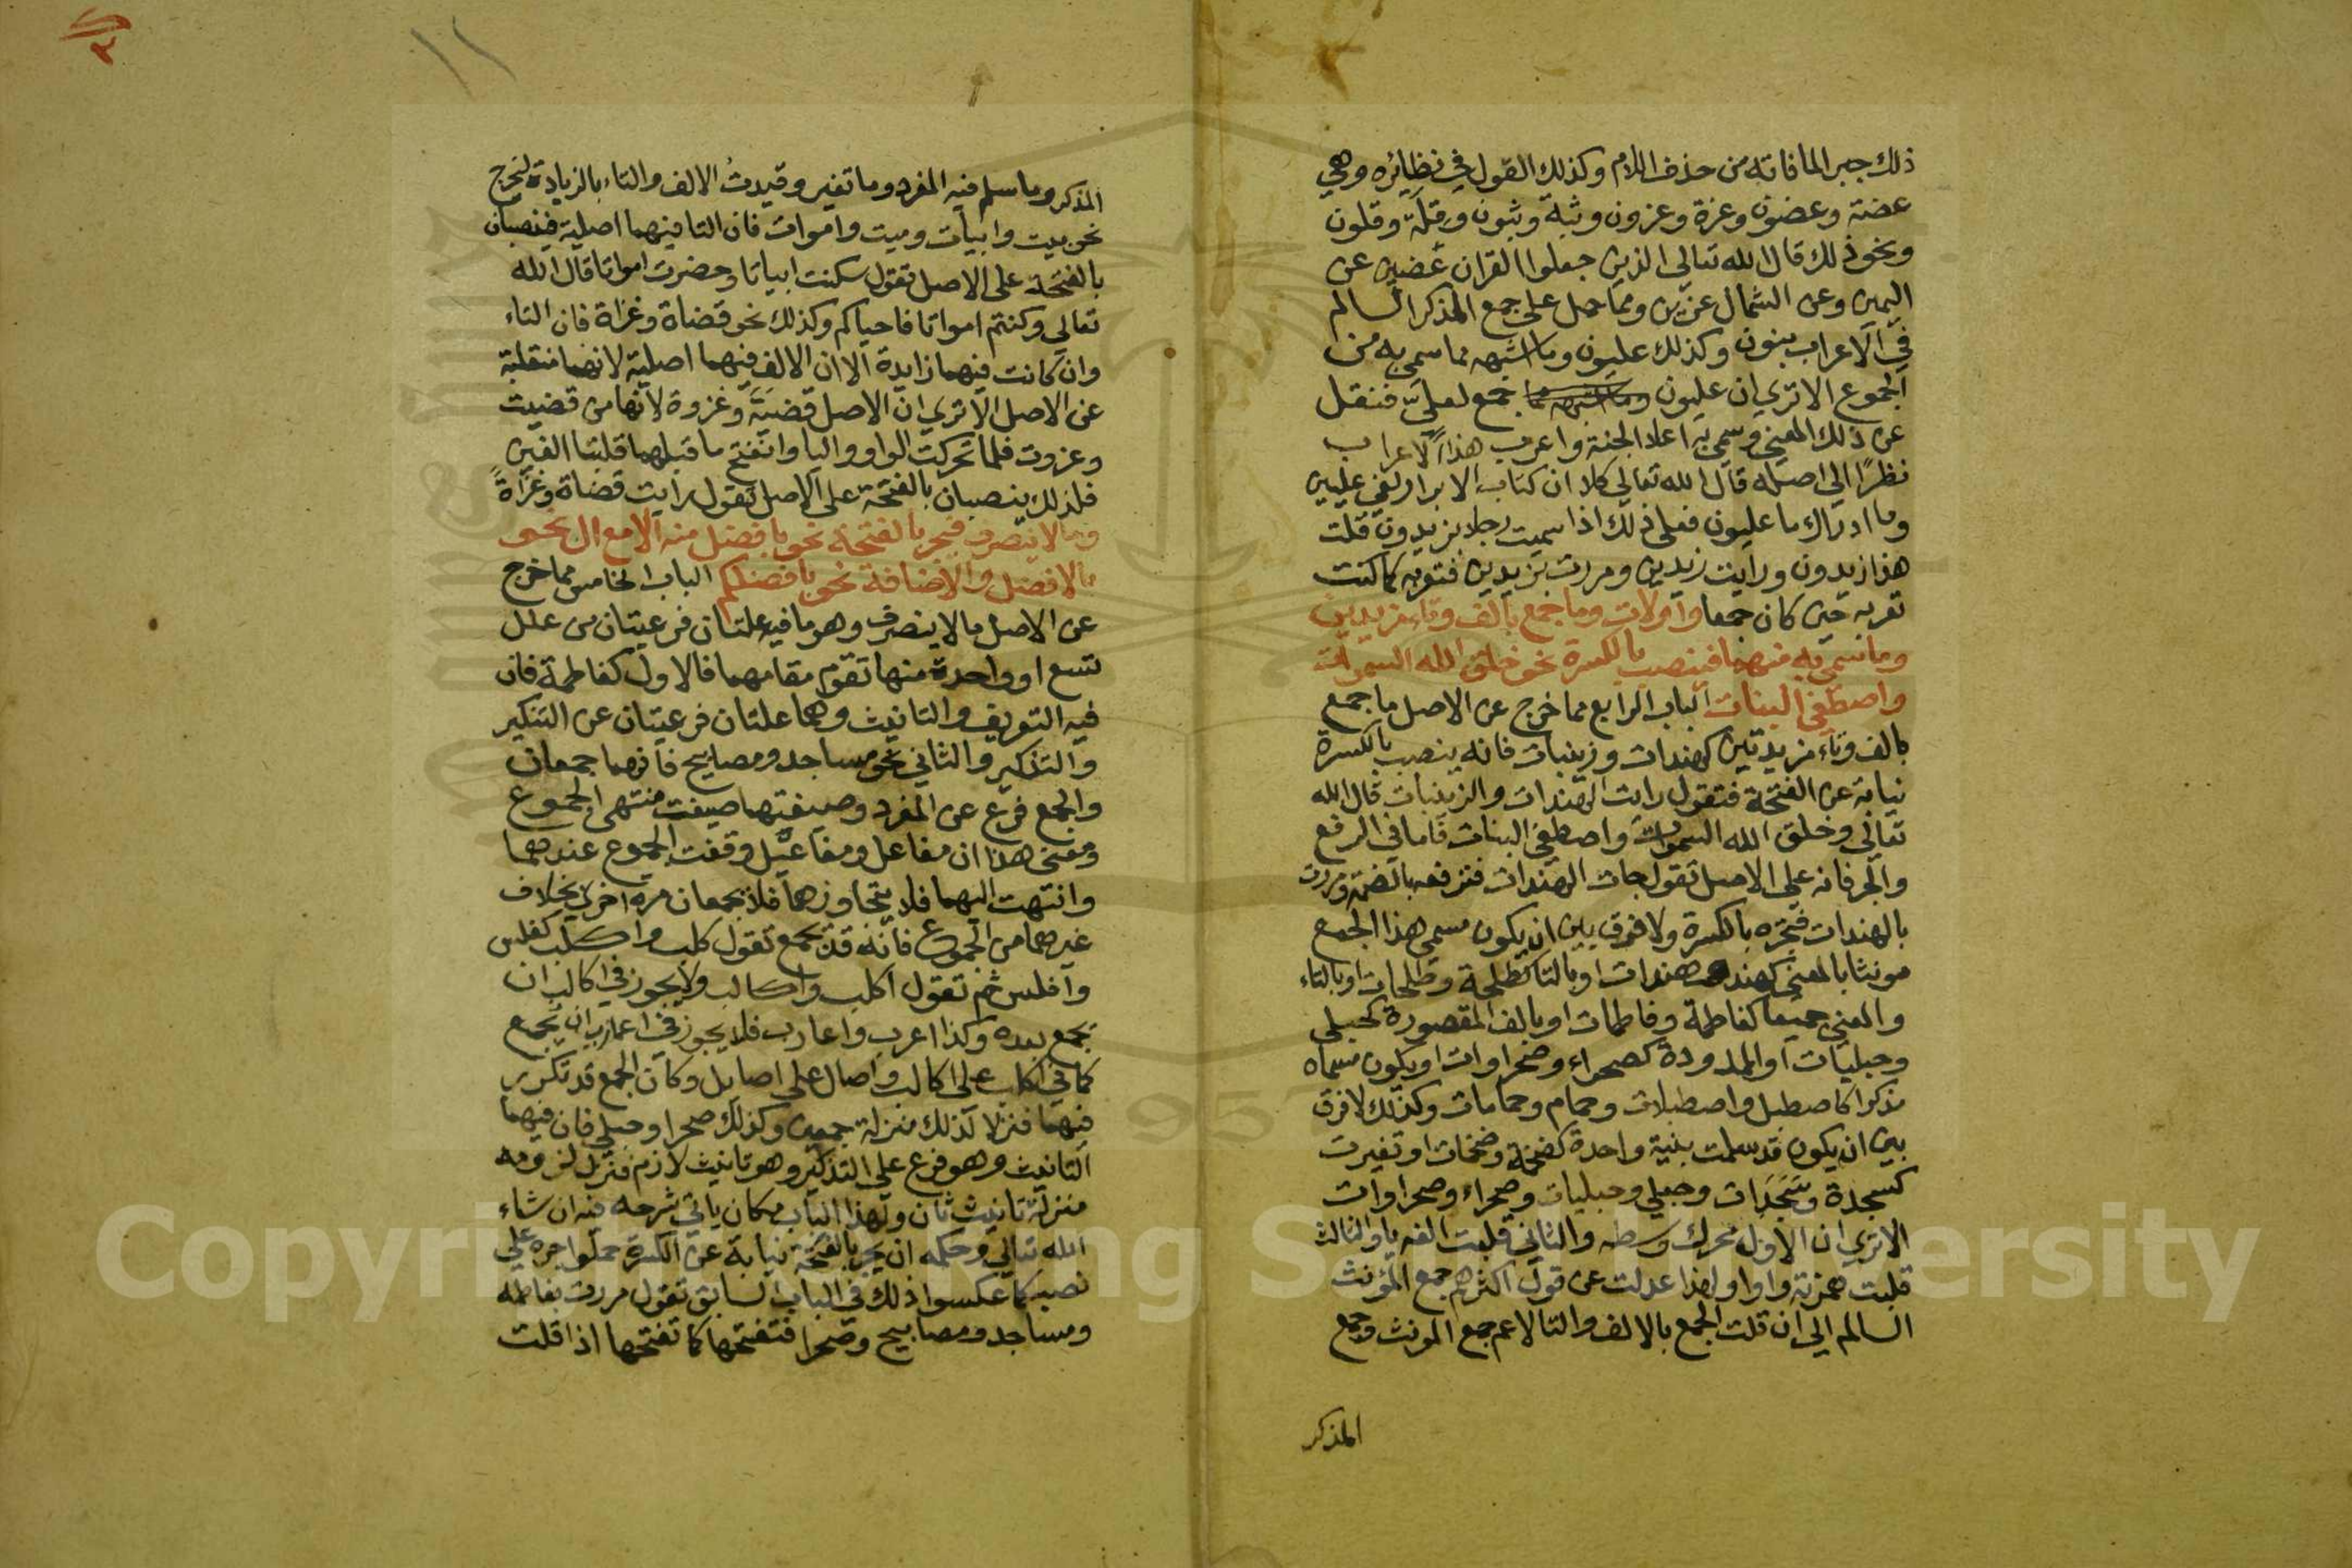 ذلك جبرا لما فاته من حذف اللام وكذلك القول في نظايره وهي
عضة وعضون وعزة وعزون وثبة وثبون وقلة وقلون
ونحو ذلك قال الله تعالي الذين جعلوا القران عضين عن
اليمين وعن الشمال عزين ومما حمل علي جمع المذكر السالم
في الاعراب بنون وكذلك عليون وما اشبهه مما سمي به من
الجموع الا تري ان عليون وما اشبهه مما جمع لعليّ فنقل
عن ذلك المعني وسمي به اعلا الجنة واعرب هذا الاعراب
نظرًا الي اصله قال الله تعالي كلا ان كتاب الابرار لفي عليين
وما ادراك ما عليون فعلي ذلك اذا سميت رجلا بزيدون قلت
هذا زيدون ورايت زيدين ومررت بزيدين فتعربه كما كنت
تعربه حين كان جمعا واولات وما جمع بالف وتاء مزيدتين
وما سمي به منهما فينصب بالكسرة نحو خلق الله السموات
واصطفي البنات الباب الرابع مما خرج عن الاصل ما جمع
بالف وتاء مزيدتين كهندات وزينبات فانه ينصب بالكسرة
نيابة عن الفتحة فتقول رايت الهندات والزينبات قال الله
تعالي وخلق الله السموات واصطفي البنات فاما في الرفع
والجر فانه علي الاصل تقول جات الهندات فترفعه بالضمة ومررت
بالهندات فتجره بالكسرة ولا فرق بين ان يكون مسمي هذا الجمع
مونثا بالمعني كهند هندات او بالتا كطلحة وطلحات او بالتاء
والمعني جميعا كفاطمة وفاطمات او بالف المقصورة كحبلي
وحبليات او الممدودة كصحراء وصحراوات او يكون مسماه
مذكرا كاصطبل واصطبلات وحمام وحمامات وكذلك لا فرق
بين ان يكون قد سلمت بنية واحدة كضخمة وضخمات او تغيرت
كسجدة وسَجَدَات وحبلي وحبليات وصحراء وصحراوات
الا تري ان الاول محرك وسطه والثاني قلبت الفه يا والثالث
قلبت همزته واوا ولهذا عدلت عن قول اكثرهم جمع المؤنث
السالم الي ان قلت الجمع بالالف والتا لاعم جمع المونث وجمع
المذكر
١١
المذكر وما سلم فيه المفرد وما تغير وقيدتُ الالف والتاء بالزيادة ليخرج
نحو بيت وابيات وميت واموات فان التا فيهما اصلية فينصبان
بالفتحة علي الاصل تقول سكنت ابياتا وحضرت امواتا قال الله
تعالي وكنتم امواتا فاحياكم وكذلك نحو قضاة وغزاة فان التاء
وان كانت فيهما زايدة الا ان الالف فيهما اصلية لانهما منقلبة
عن الاصل الا تري ان الاصل قضية وغزوة لانها من قضيت
وغزوت فلما تحركت الواو واليا وانفتح ما قبلهما قلبتا الفين
فلذلك ينصبان بالفتحة علي الاصل تقول رايت قضاة وغزاةً
وما لا ينصرف فيجر بالفتحة نحو بافضل منه الا مع ال نحو
بالافضل والاضافة نحو بافضلكم الباب الخامس مما خرج
عن الاصل ما لا ينصرف وهو ما فيه علتان فرعيتان من علل
تسع او واحدة منها تقوم مقامهما فالاول كفاطمة فان
فيه التعريف والتانيث وهما علتان فرعيتان عن التنكير
والتذكير والثاني نحو مساجد ومصابيح فانهما جمعان
والجمع فرع عن المفرد وصيغتهما صيغت منتهي الجموع
ومعني هذا ان مفاعل ومفاعيل وقفت الجموع عندهما
وانتهت اليهما فلا يتجاوزهما فلا يجمعان مرة اخري بخلاف
غيرهما من الجموع فانه قد يجمع تقول كلب واكلب كفلس
وافلس ثم تقول اكلب واكالب ولا يجوز في اكالب ان
يجمع بعده وكذا اعرب واعارب فلا يجوز في اعارب ان يجمع
كما في اكلب علي اكالب واصال علي اصايل وكان الجمع قد تكرر
فيهما فنزلا لذلك منزلة جمعين وكذلك صحرا وحبلي فان فيهما
التانيث وهو فرع علي التذكير وهو تانيث لازم فنزل لزومه
منزلة تانيث ثان ولهذا الباب مكان ياتي شرحه فيه ان شاء
الله تعالي وحكمه ان يجر بالفتحة نيابة عن الكسرة حملوا جره علي
نصبه كما عكسوا ذلك في الباب السابق تقول مررت بفاطمه
ومساجد ومصابيح وصحرا فتفتحها كما تفتحها اذا قلت
Copyright King Saud University